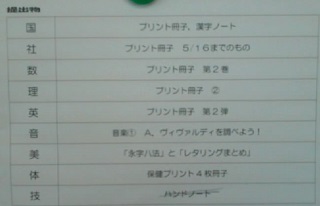 提出物
国 プリント冊子、漢字ノート
社 プリント冊子 5/16までのもの
数 プリント冊子 第2巻
理 プリント冊子 ②
英 プリント冊子 第2弾
音 音楽① A、ヴィヴァルディを調べよう!
美 「永字八法」と「レタリングまとめ」
体 保健プリント4枚冊子
技 ハンドノート